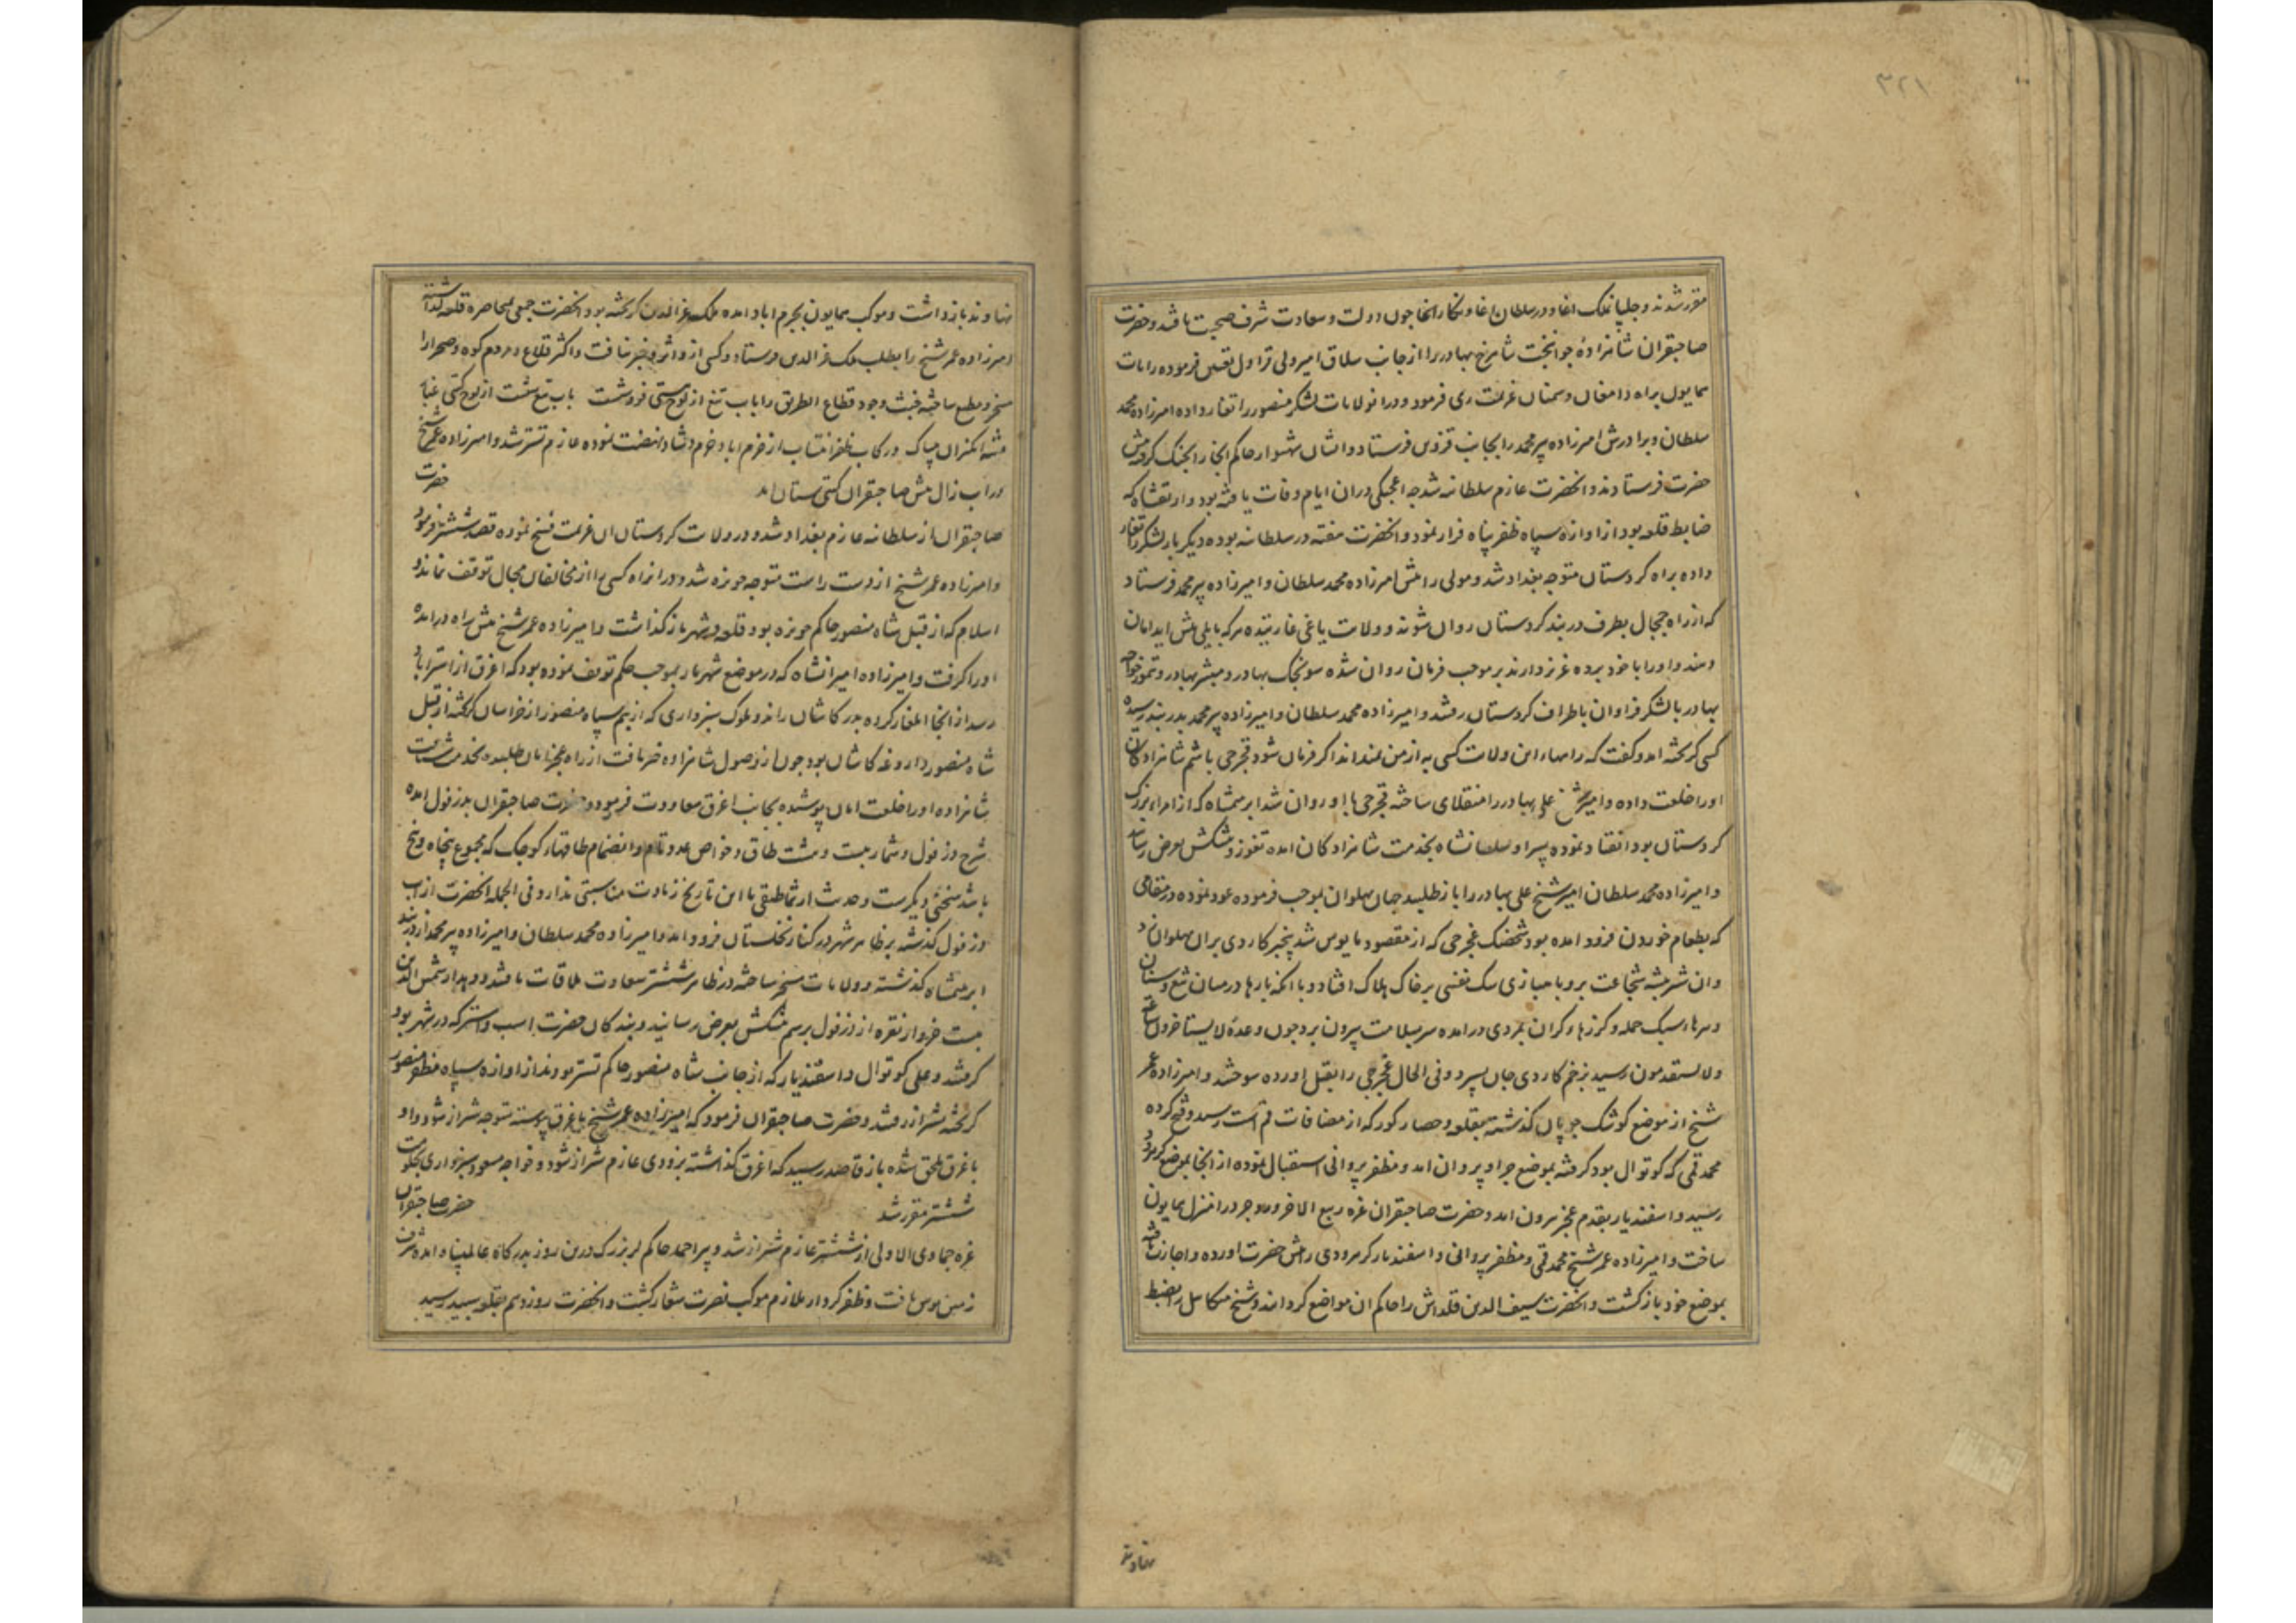 ٣٢١
مقرر شدند و جلپانملک اغا و درسلطان اغا و نکار اغا چون دولت و سعادت شرف صحبت یافتند و حضرت
صاحبقران شاهزادهٔ جوانبخت شاهرخ بهادر را از جانب سلاق امیر ولی قراول تعیین فرموده رایات
همایون براه دامغان و سمنان عزیمت ری فرمود و در ان ولایات لشکر منصور را تغار داده امیرزاده محمد
سلطان و برادرش امیرزاده پیر محمد را بجانب قزوین فرستاد و ایشان شهسوار حاکم انجا را بجنک کرفته پیش
حضرت فرستادند و انحضرت عازم سلطانیه شد چه اعجکی دران ایام وفات یافته بود و ارتقشاه که
ضابط قلعه بود از اوازه سپاه ظفر پناه فرار نمود و انحضرت هفته در سلطانیه بوده دیکر بار لشکر را تغار
داده براه کردستان متوجه بغداد شد و مولی را پیش امیرزاده محمد سلطان و امیرزاده پیر محمد فرستاد
که از راه چمچال بطرف دربند کردستان روان شوند و ولایت یاغی غارتیده هرکه بایلی پیش اید امان
دهند و او را با خود برده عزیز دارند بر موجب فرمان روان شده سونجک بهادر و مبشر بهادر و تمور خواجه
بهادر با لشکر فراوان باطراف کردستان رفتند و امیرزاده محمد سلطان و امیرزاده پیر محمد بدربند رسیده
کسی کریخته امد و کفت که راهها این ولایت کسی به از من نمیداند اکر فرمان شود قجرجی باشم شاهزادکان
اورا خلعت داده و امیر شیخ علی بهادر را منقلای ساخته قجرجی با او روان شد ابرهیمشاه که از امراء بزرک
کردستان بود انقیاد نموده پسر او سلطانشاه بخدمت شاهزادکان امده تقوز و پیشکش بعرض رسانید
و امیرزاده محمد سلطان امیر شیخ علی بهادر را باز طلبید جهان پهلوان بموجب فرموده عود نموده در مقامی
که بطعام خوردن فرود امده بود شخصک غجرجی که از مقصود مایوس شد بیخبر کاردی بران پهلوان زد
وان شیر بیشه شجاعت بروباه بازی سک نفسی بر خاک هلاک افتاد و با انکه بارها در میان تیغ و سنان
و سرهاء سبک حمله و کرزهاء کران بمردی درامده سر بسلامت بیرون برد چون وعدهٔ لا یستاخرون ساعة
ولا یستقدمون رسید بزخم کاردی جان بسپرد و فی الحال غجرجی را بقتل اورده سوختند و امیرزاده عمر
شیخ از موضع کوشک جوپان کذشته بقلعه و حصار کور که از مضافات قم است رسید و فتح کرده
محمد قمی که کوتوال بود کرفته بموضع جرا و پروان امد و مظفر پروانی استقبال نموده از انجا بموضع کرمرود
رسید و اسفندیار بقدم عجز بیرون امد و حضرت صاحبقران غره ربیع الاخر وروجرد را منزل همایون
ساخت و امیرزاده عمر شیخ محمد قمی و مظفر پروانی و اسفندیار کرمرودی را پیش حضرت اورده و اجازت یافته
بموضع خود بازکشت و انحضرت سیف الدین قلداش را حاکم ان مواضع کردانید و شیخ میکائیل را بضبط
نهاوند
نهاوند بازداشت و موکب همایون بخرم اباد امده ملک عزالدین کریخته بود انحضرت جمعی بمحاصره قلعه کذاشته
امیرزاده عمر شیخ را بطلب ملک عزالدین فرستاد و کسی از و اثر و خبر نیافت و اکثر قلاع و مردم کوه و صحرا را
مسخر و مطیع ساخته خبث وجود قطاع الطریق را باب تیغ از لوح هستی فروشست باب تیغ بشست از لوح کیتی غبار
فتنه انکیزان چباک و رکاب ظفر انتساب از خرم اباد خرم و شاد نهضت نموده عازم تستر شد و امیرزاده عمر شیخ
در اب زال پیش صاحبقران کیتی ستان امد حضرت
صاحبقران از سلطانیه عازم بغداد شد و در ولایت کردستان ان عزیمت فسخ نموده قصد ششتر فرمود
و امیرزاده عمر شیخ از دست راست متوجه حویزه شد و در انراه کسی را از مخالفان مجال توقف نماند و
اسلام که از قبل شاه منصور حاکم حویزه بود قلعه و شهر باز کذاشت و امیرزاده عمر شیخ پیش راه درامده
اورا کرفت و امیرزاده امیرانشاه که در موضع شهریار بموجب حکم توقف نموده بود که اغرق از استراباد
رسد از انجا ایلغار کرده بدر کاشان راند و ملوک سبزواری که از بیم سپاه منصور از خراسان کریخته از قبل
شاه منصور داروغه کاشان بود چون از وصول شاهزاده خبر یافت از راه عجز امان طلبیده بخدمت شتافت
شاهزاده اورا خلعت امان پوشیده بجانب اغرق معاودت فرمود و حضرت صاحبقران بدزفول امده
شرح دزفول و شمار بیست و هشت طاق و خواص عدد تام و انضمام طاقهاء کوچک که مجموع پنجاه و پنج
باشد سخنی دیکرست و حدیث ارثماطیقی با این تاریخ زیادت مناسبتی ندارد فی الجمله انحضرت از اب
دزفول کذشته بر ظاهر شهر در کنار نخلستان فرود امد و امیرزاده محمد سلطان و امیرزاده پیر محمد از دربند
ابرهیمشاه کذشته و ولایات مسخر ساخته در ظاهر ششتر سعادت ملاقات یافتند و بهدار شمس الدین
بیست خروار نقره از دزفول برسم پیشکش بعرض رسانید و بندکان حضرت اسب و استر که در شهر بود
کرفتند و علی کوتوال و اسفندیار که از جانب شاه منصور حاکم تستر بودند از اوازه سپاه مظفر منصور
کریخته بشیراز رفتند و حضرت صاحبقران فرمود که امیرزاده عمر شیخ باغرق پیوسته متوجه شیراز شود و او
باغرق ملحق شده باز قاصد رسید که اغرق کذاشته بزودی عازم شیراز شود و خواجه مسعود سبزواری بحکومت
ششتر مقرر شد حضرت صاحبقران
غره جمادی الاولی از ششتر عازم شیراز شد و پیر احمد حاکم لر بزرک درین روز بدرکاه عالمپناه امده شرف
زمین بوس یافت و ظفر کردار ملازم موکب نصرت شعار کشت و انحضرت روز دهم بقلعه سپید رسید